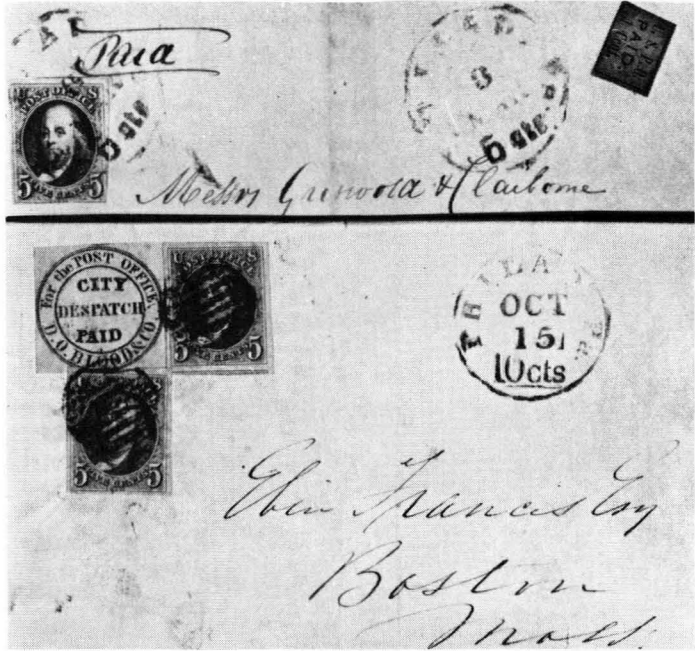 Paid
POST OFFICE
5 5
5 cts
5 cts
PAID
Messrs Griswold & Claiborne
For the POST OFFICE.
CITY
DESPATCH
PAID
D.O. BLOOD & CO.
U S
5 5
PHILADA
OCT
15
10cts
5 5
Ebin Francis Esq
Boston
Mass.